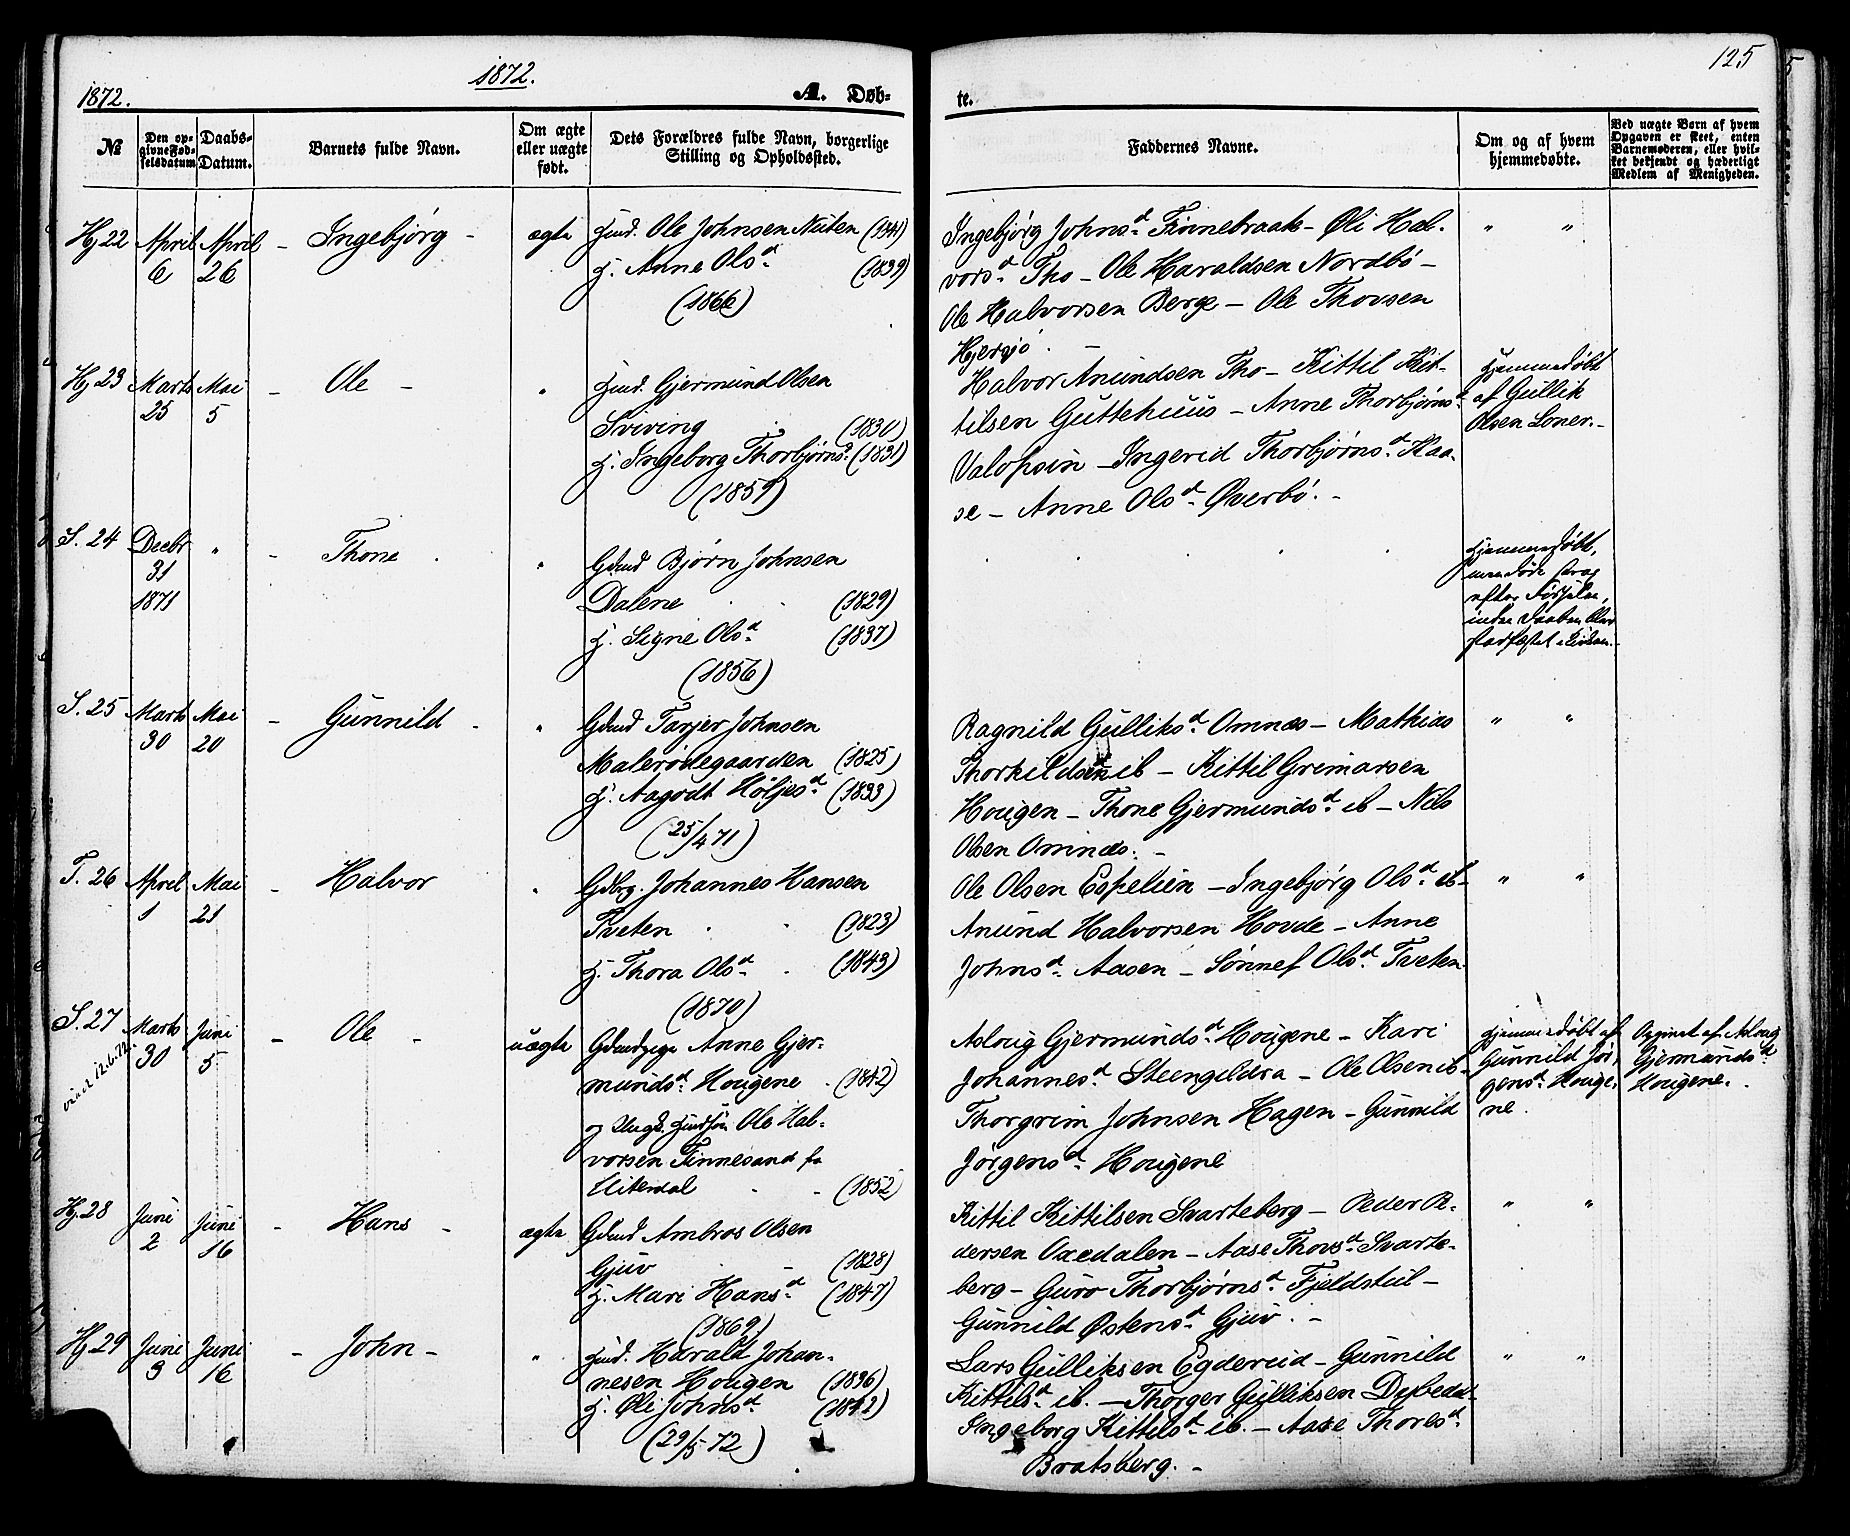 1872.
1872.
A. Døb-
№
Den op-
givne Fød-
selsdatum
Daabs-
Datum.
Barnets fulde Navn.
Om ægte
eller uægte
født.
Dets Forældres fulde Navn, borgerlige
Stilling og Opholdssted.
125
te.
Faddernes Navne.
Om og af hvem
hjemmedøbte.
Ved uægte Børn af hvem
Opgaven er skeet, enten
Barnemoderen, eller hvil-
ket bekjendt og hæderligt
Medlem af Menigheden.
Hj 22 April 6 April 26 - Ingebjørg - ægte
Hmd. Ole Johnsen Nuten (1841)
H. Anne Olsd. (1839)
(1866)
Ingebjørg Johnsd. Finnebraate - Øli Hal-
vorsd. Tho - Ole Haraldsen Nordbø -
Ole Halvorsen Berge - Ole Thovsen
Hjersjø. " "
Hj 23 Marts 25 Mai 5 - Ole - "
Hmd. Gjermund Olsen
Sviving (1830)
H. Ingeborg Thorbjørnsd. (1831)
(1859)
Halvor Anundsen Tho - Kittil Kit-
tilsen Guttehuus - Anne Thorbjørnsd.
- Ingerid Thorbjørnsd. Kaa-
se - Anne Olsd. Øverbø. -
Hjemmedøbt
af Gullik
Olsen Loner. -
S. 24 Decbr 31 1871 " - Thone "
Gdmd Bjørn Johnsen
Dalene (1829)
H. Signe Olsd. (1837)
(1856)
Hjemmedøbt,
men døde strax
efter Fødselen,
inden Daaben blev
stadfæstet i Kirken. -
S. 25 Marts 30 Mai 20 - Gunnild - "
Gdmd Tarjer Johnsen
Malerødegaarden (1825)
H. Aagodt Høljesd. (1833)
(25/4 71)
Ragnild Gulliksd. Omnæs - Mathias
Thorkildsen ib - Kittil Greimarsen
Hougen - Thone Gjermundsd. ib - Nils
Olsen Omnæs. - " "
T. 26 April 1 Mai 21 - Halvor "
Gdbrg. Johannes Hansen
Tveten (1823)
H. Thora Olsd. (1843)
(1870)
Ole Olsen Espelien - Ingebjørg Olsd. ib -
Anund Halvorsen Hovde - Anne
Johnsd. Aasen - Sønnef Olsd. Tveten. " "
S. 27 Marts 30 Juni 5 - Ole - uægte
12.6.72
Gdmdpige Anne Gjer-
mundsd. Hougene (1842)
og Ungk. Hmdsøn Ole Hal-
vorsen Finnesand fra
Hiterdal (1852)
Aslaug Gjermundsd. Hougene - Kari
Johannesd. Steengildra - Ole Olsen ib -
Thorgrim Johnsen Hagen - Gunnild
Jørgensd. Hougene
Hjemmedøbt af
Gunnild Jør-
gensd. Houge-
ne.
Opgivet af Aslaug
Gjermundsd.
Hougene.
Hj. 28 Juni 2 Juni 16 - Hans - ægte
Gdmd Ambros Olsen
Gjuv (1828)
H. Mari Hansd. (1847)
(1869)
Kittil Kittilsen Svarteberg - Peder Pe-
dersen Oxedalen - Aase Thovsd. Svarte-
berg - Guro Thorbjørnsd. Fjeldstul -
Gunnild Østensd. Gjuv. - " "
Hj 29 Juni 3 Juni 16 - John - "
Hmd. Harald Johan-
nesen Hougen (1836)
H. Øli Johnsd. (1842)
(29/5 72)
Lars Gulliksen Egdereid - Gunnild
Kittilsd. ib. - Thorger Gulliksen
Ingeborg Kittilsd. ib. - Aase Thoresd.
Bratsberg. - " "